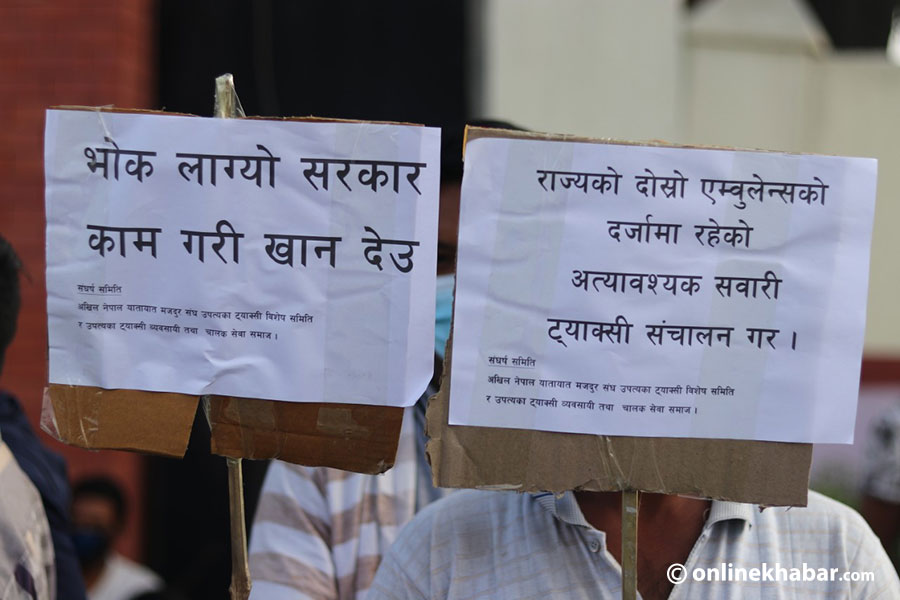 भोक लाग्यो सरकार
काम गरी खान देउ
संघर्ष समिति
अखिल नेपाल यातायात मजदुर संघ उपत्यका ट्याक्सी विशेष समिति
र उपत्यका ट्याक्सी व्यवसायी तथा चालक सेवा समाज ।
राज्यको दोस्रो एम्वुलेन्सको
दर्जामा रहेको
अत्यावश्यक सवारी
ट्याक्सी संचालन गर ।
संघर्ष समिति
अखिल नेपाल यातायात मजदुर संघ उपत्यका ट्याक्सी विशेष समिति
र उपत्यका ट्याक्सी व्यवसायी तथा चालक सेवा समाज ।
© onlinekhabar.com